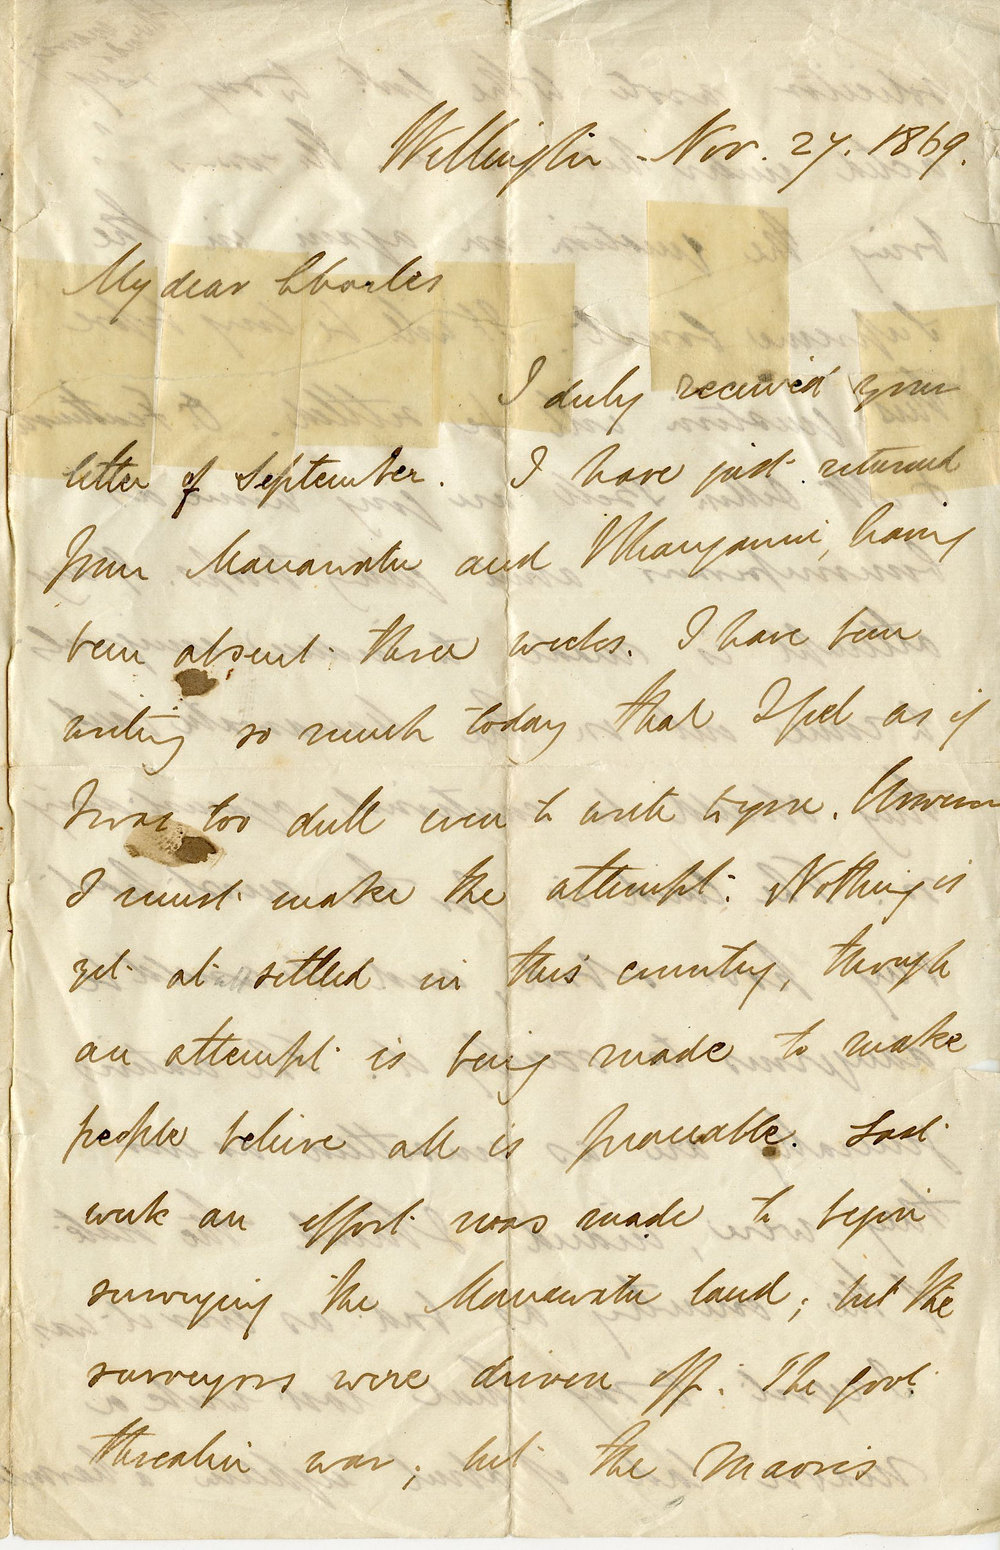 Wellington - Nov. 27. 1869.
My dear Charles
I duly received your
letter of September. I have just returned
from Manawatu and Wanganui, having
been absent three weeks. I have been
writing so much today that I feel as if
I was too dull even to write to you. However
I must make the attempt. Nothing is
yet at settled in this country, though
an attempt is being made to make
people believe all is peaceable. Last
week an effort was made to begin
surveying the Manawatu land; but the
surveyors were driven off. The govt.
threaten war; but the Maoris